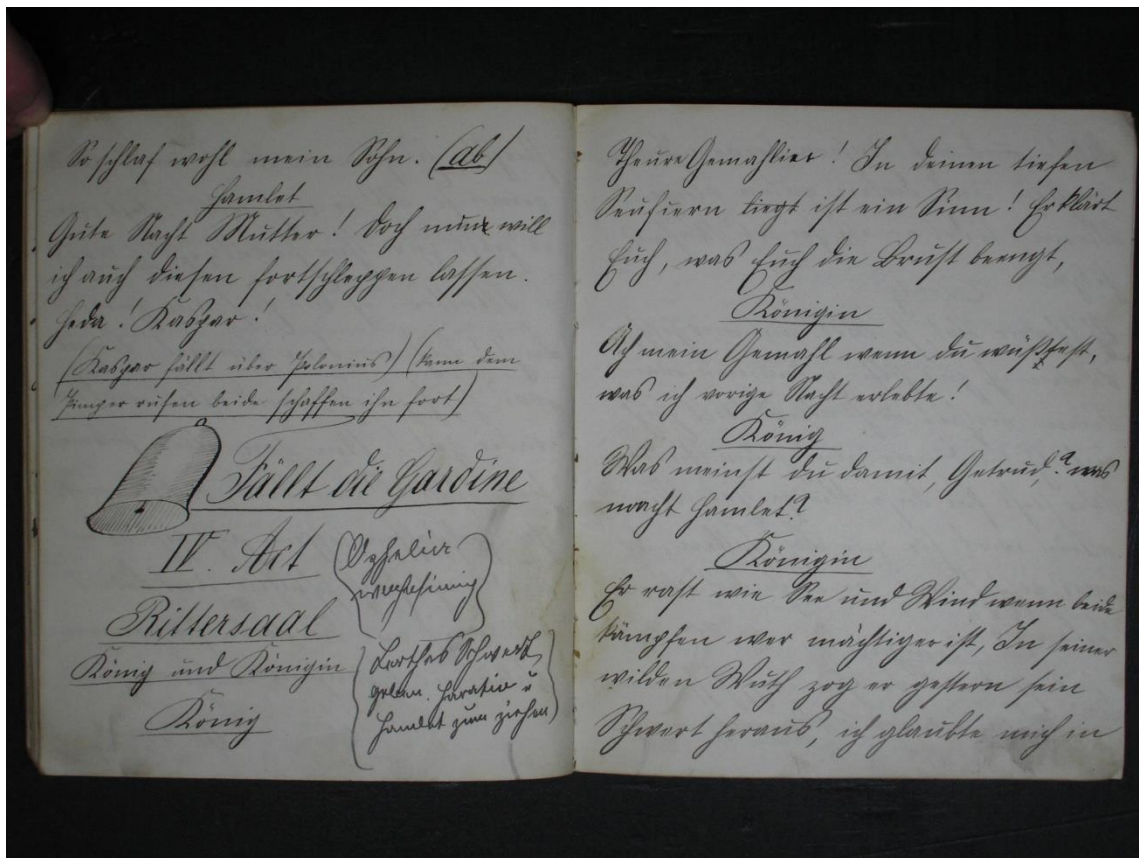 So schlaf wohl mein Sohn. (ab)
Hamlet
Gute Nacht Mutter! Doch nun will
ich auch diesen fortschleppen lassen.
Heda! Kaspar!
(Kaspar fällt über Polonius) (kann dem
Pimper rufen beide schaffen ihn fort)
Fällt die Gardine
IV. Act
(Ophelia
wahnsinnig)
Rittersaal
König und Königin
(Laertes Schwert
geben. Horatio u
Hamlet zum ziehen)
König
Theure Gemahlin! In deinen tiefen
Seufzern liegt ist ein Sinn! Erklärt
Euch, was Euch die Brust beengt,
Königin
Ach mein Gemahl wenn du wüßtest,
was ich vorige Nacht erlebte!
König
Was meinst du damit, Getrud,? was
macht Hamlet?
Königin
Er rast wie See und Wind wenn beide
kämpfen wer mächtiger ist, In seiner
wilden Wuth zog er gestern sein
Schwert heraus, ich glaubte mich in